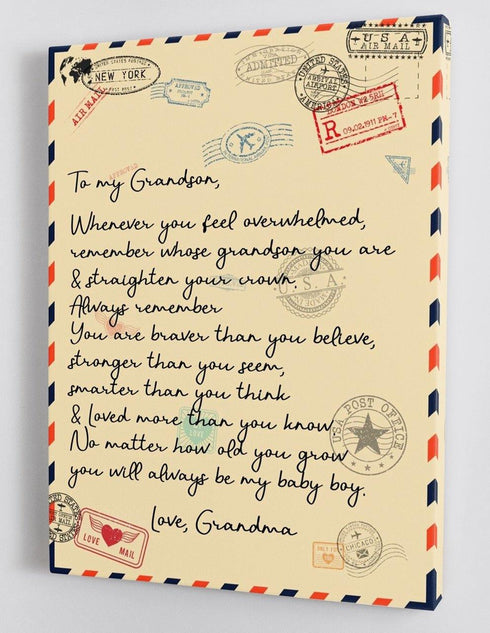 NEW YORK
AIR MAIL
APPROVED
ADMITTED
UNITED STATES
ARRIVAL
AIRPORT
AMERICA
USA
AIR MAIL
LONDON WR 5RH
R 09.02.1911 PM-7
APPROVED
To my Grandson,
Whenever you feel overwhelmed,
remember whose grandson you are
& straighten your crown.
Always remember
You are braver than you believe,
stronger than you seem,
smarter than you think
& loved more than you know
No matter how old you grow
you will always be my baby boy.
Love, Grandma
MADE IN
U.S.A.
MADE IN
LOVE
USA POST OFFICE
AIR MAIL
LOVE MAIL
ONLY FOR
CHICAGO